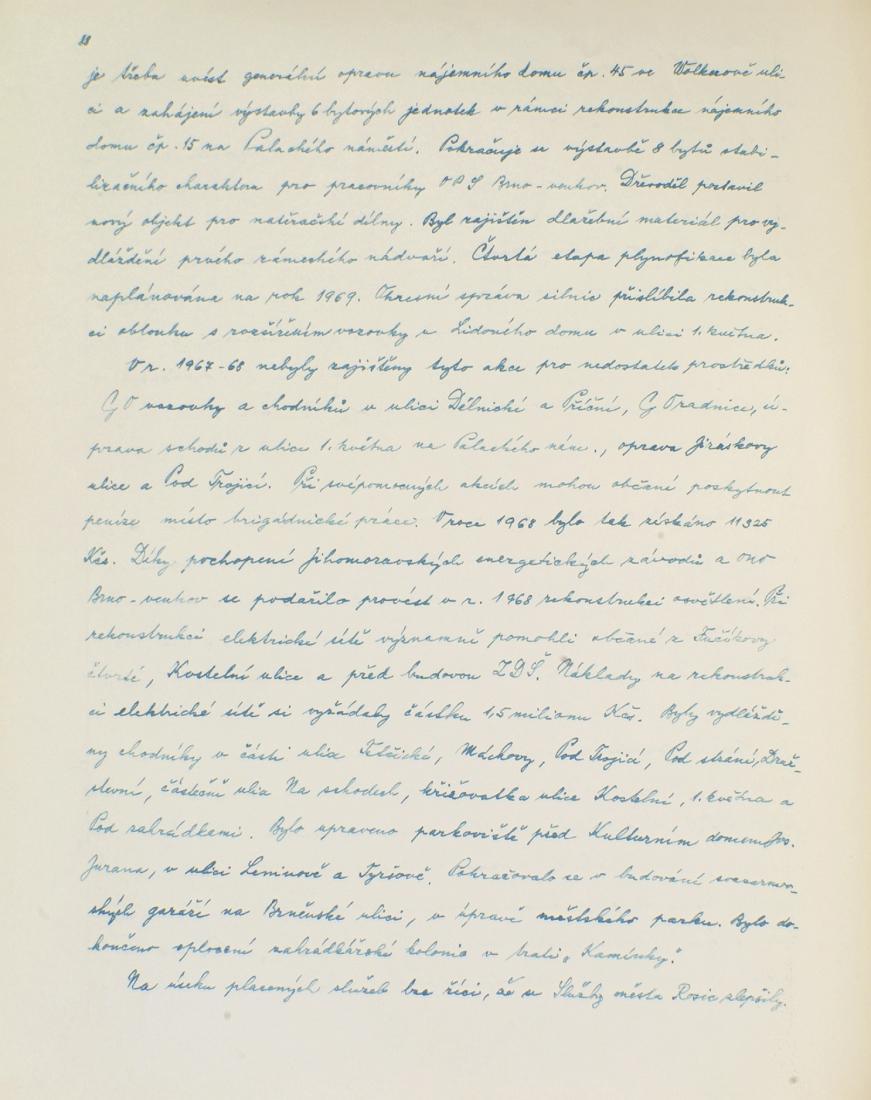 je třeba uvést generální opravu nájemního domu čp. 45 ve Wolkerově uli-
ci a zahájení výstavby 6 bytových jednotek v rámci rekonstrukce nájemního
domu čp. 15 na Palackého náměstí. Pokračuje se výstavbě 8 bytů stabi-
lizačního charakteru pro pracovníky OPS Brno-venkov. Dřevoděl postavil
nový objekt pro natěračské dílny. Byl zajištěn dlažební materiál pro vy-
dláždění prvého zámeckého nádvoří. Čtvrtá etapa plynofikace byla
naplánována na rok 1969. Okresní správa silnic přislíbila rekonstruk-
ci oblouku s rozšířením vozovky u Lidového domu v ulici 1. května.
V r. 1967-68 nebyly zajištěny tyto akce pro nedostatek prostředků:
GO vozovky a chodníků v ulici Dělnické a Příční, GO radnice, ú-
prava schodů z ulice 1. května na Palackého nám., oprava Jiráskovy
ulice a Pod Trojicí. Při svépomocných akcích mohou občané poskytnout
peníze místo brigádnické práce. V roce 1968 bylo tak získáno 11 325
Kčs. Díky pochopení Jihomoravských energetických závodů a ONV
Brno-venkov se podařilo provést v r. 1968 rekonstrukci osvětlení. Při
rekonstrukci elektrické sítě významně pomohli občané z Fučíkovy
čtvrti, Kostelní ulice a před budovou ZDŠ. Náklady na rekonstruk-
ci elektrické sítě si vyžádaly částku 1,5 milionu Kčs. Byly vydláždě-
ny chodníky v části ulic Tetčické, Máchovy, Pod Trojicí, Pod strání, Druž-
stevní, částečně ulic Na schodech, křižovatka ulice Kostelní, 1. května a
Pod zahrádkami. Bylo upraveno parkoviště před Kulturním domem Jos.
Jurana, v ulici Leninově a Tyršově. Pokračovalo se v budování svazarmov-
ských garáží na Brněnské ulici, v úpravě městského parku. Bylo do-
končeno oplocení zahrádkářské kolonie v trati „Kamínky“.
Na úseku placených služeb lze říci, že se Služby města Rosic zlepšily.